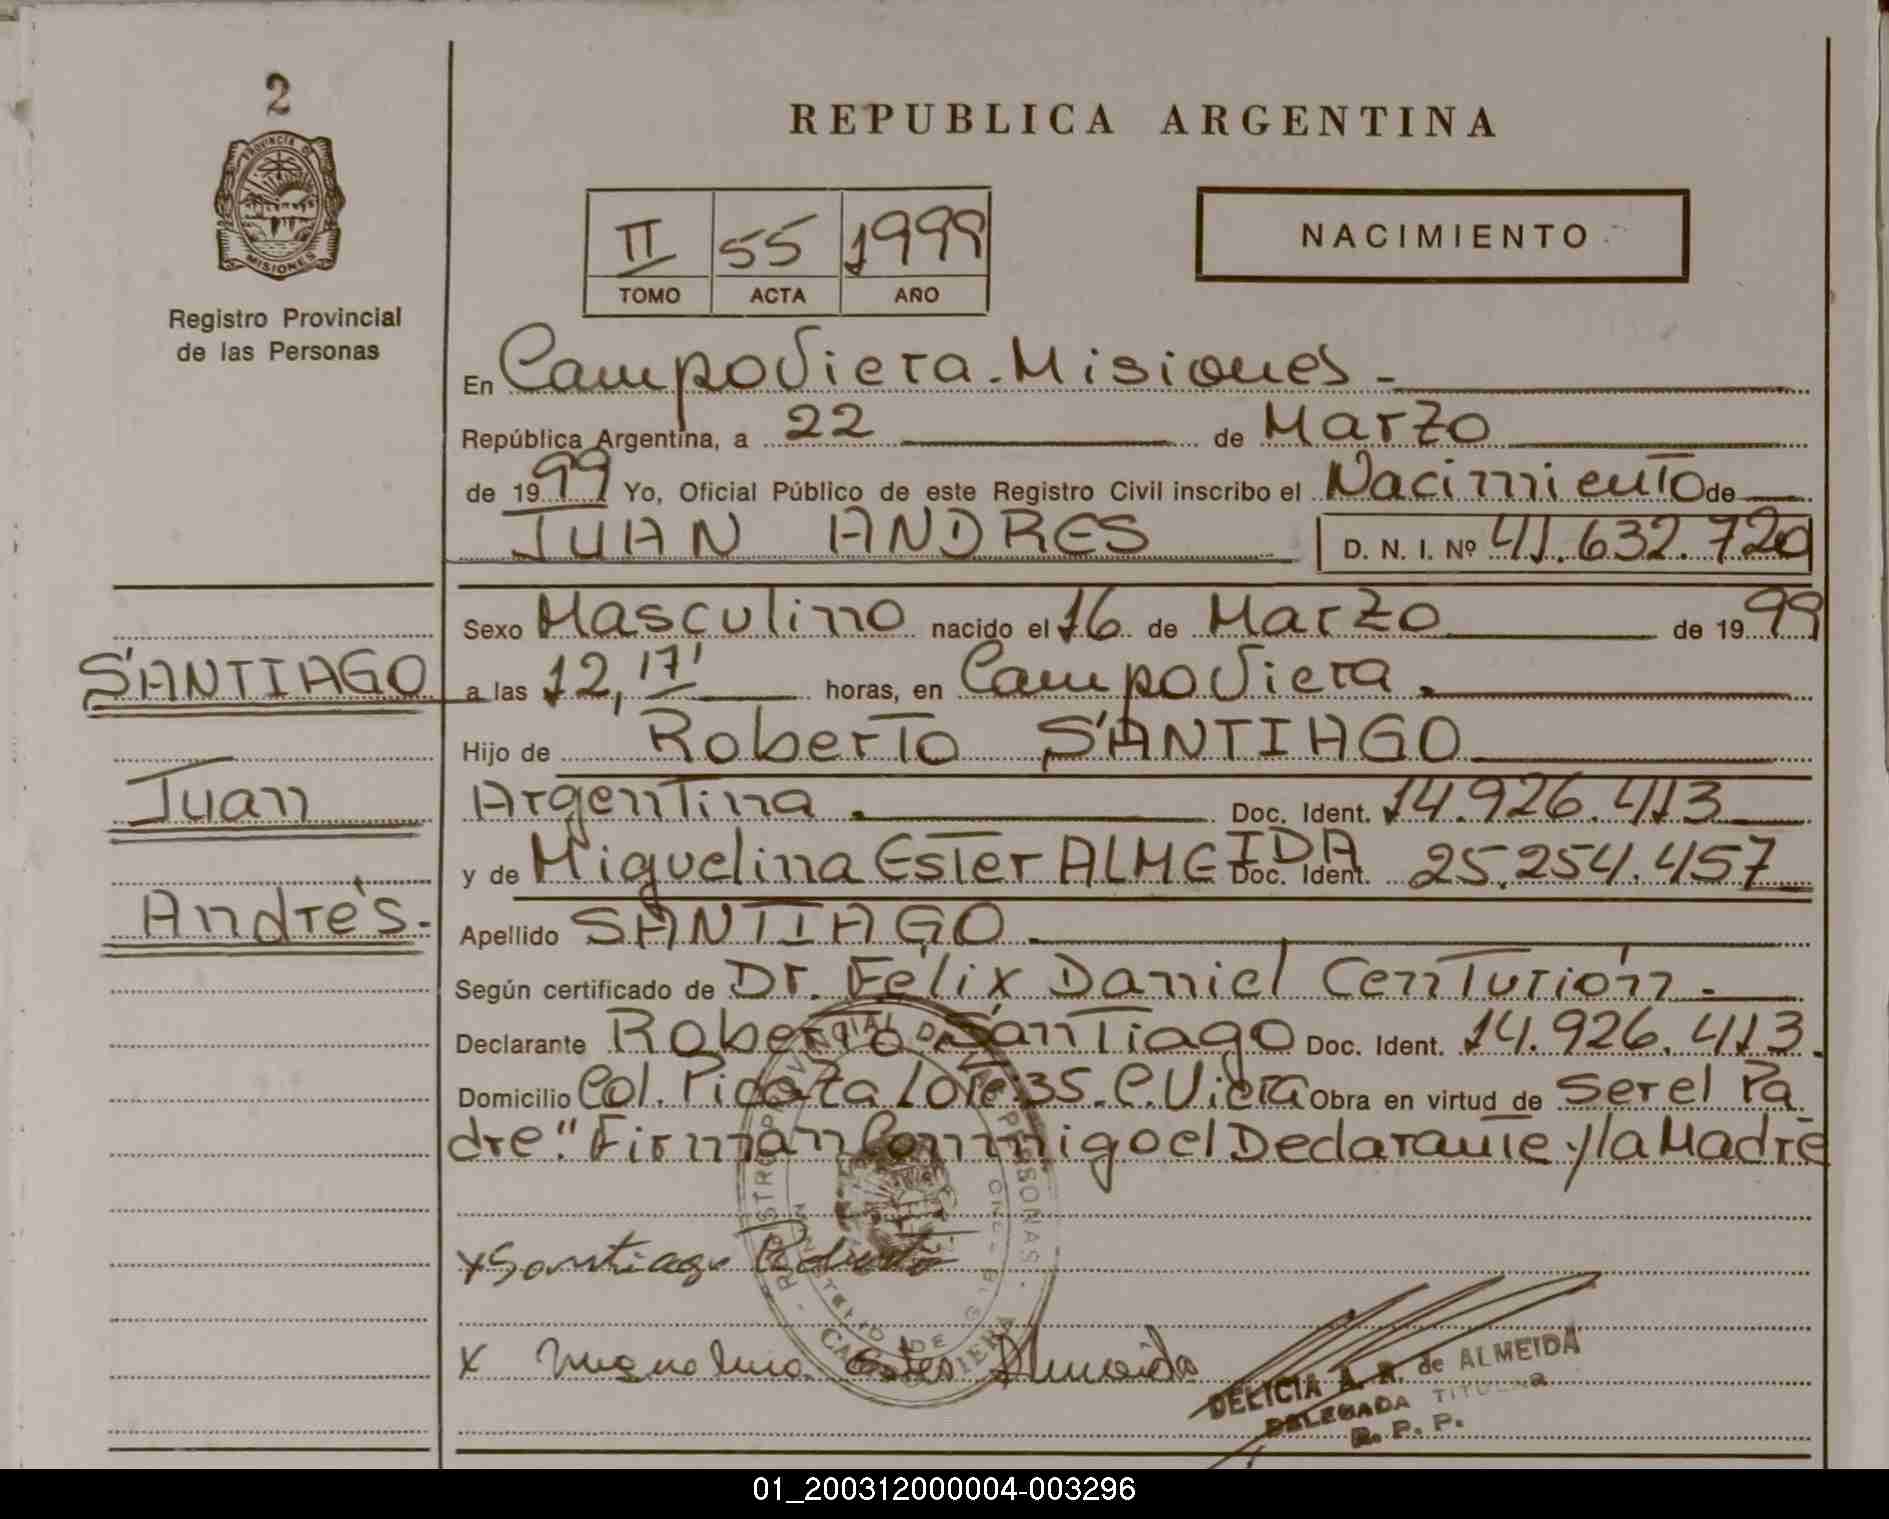 2
PROVINCIA DE
MISIONES
Registro Provincial
de las Personas
REPUBLICA ARGENTINA
II 55 1999
TOMO ACTA AÑO
NACIMIENTO
En Campo Viera - Misiones -
República Argentina, a 22 de Marzo
de 1999 Yo, Oficial Público de este Registro Civil inscribo el Nacimiento de
JUAN ANDRES D. N. I. Nº 41.632.720
Sexo Masculino nacido el 16 de Marzo de 1999
SANTIAGO
a las 12,17' horas, en Campo Viera.
Hijo de Roberto SANTIAGO
Juan
Argentina. Doc. Ident. 14.926.413
y de Miguelina Ester ALMEIDA Doc. Ident. 25.254.457
Andrés.-
Apellido SANTIAGO.
Según certificado de Dr. Félix Daniel Centurión.-
Declarante Roberto Santiago Doc. Ident. 14.926.413.
Domicilio Col. Picaza Lote:35.C.Viera Obra en virtud de ser el Pa
dre." Firman Conmigo el Declarante y la Madre
x Santiago Roberto
x Miguelina Ester Almeida
REGISTRO PROVINCIAL DE LAS PERSONAS
MINISTERIO DE GOBIERNO
CAMPO VIERA
DELICIA A. R. de ALMEIDA
DELEGADA TITULAR
R. P. P.
01_200312000004-003296